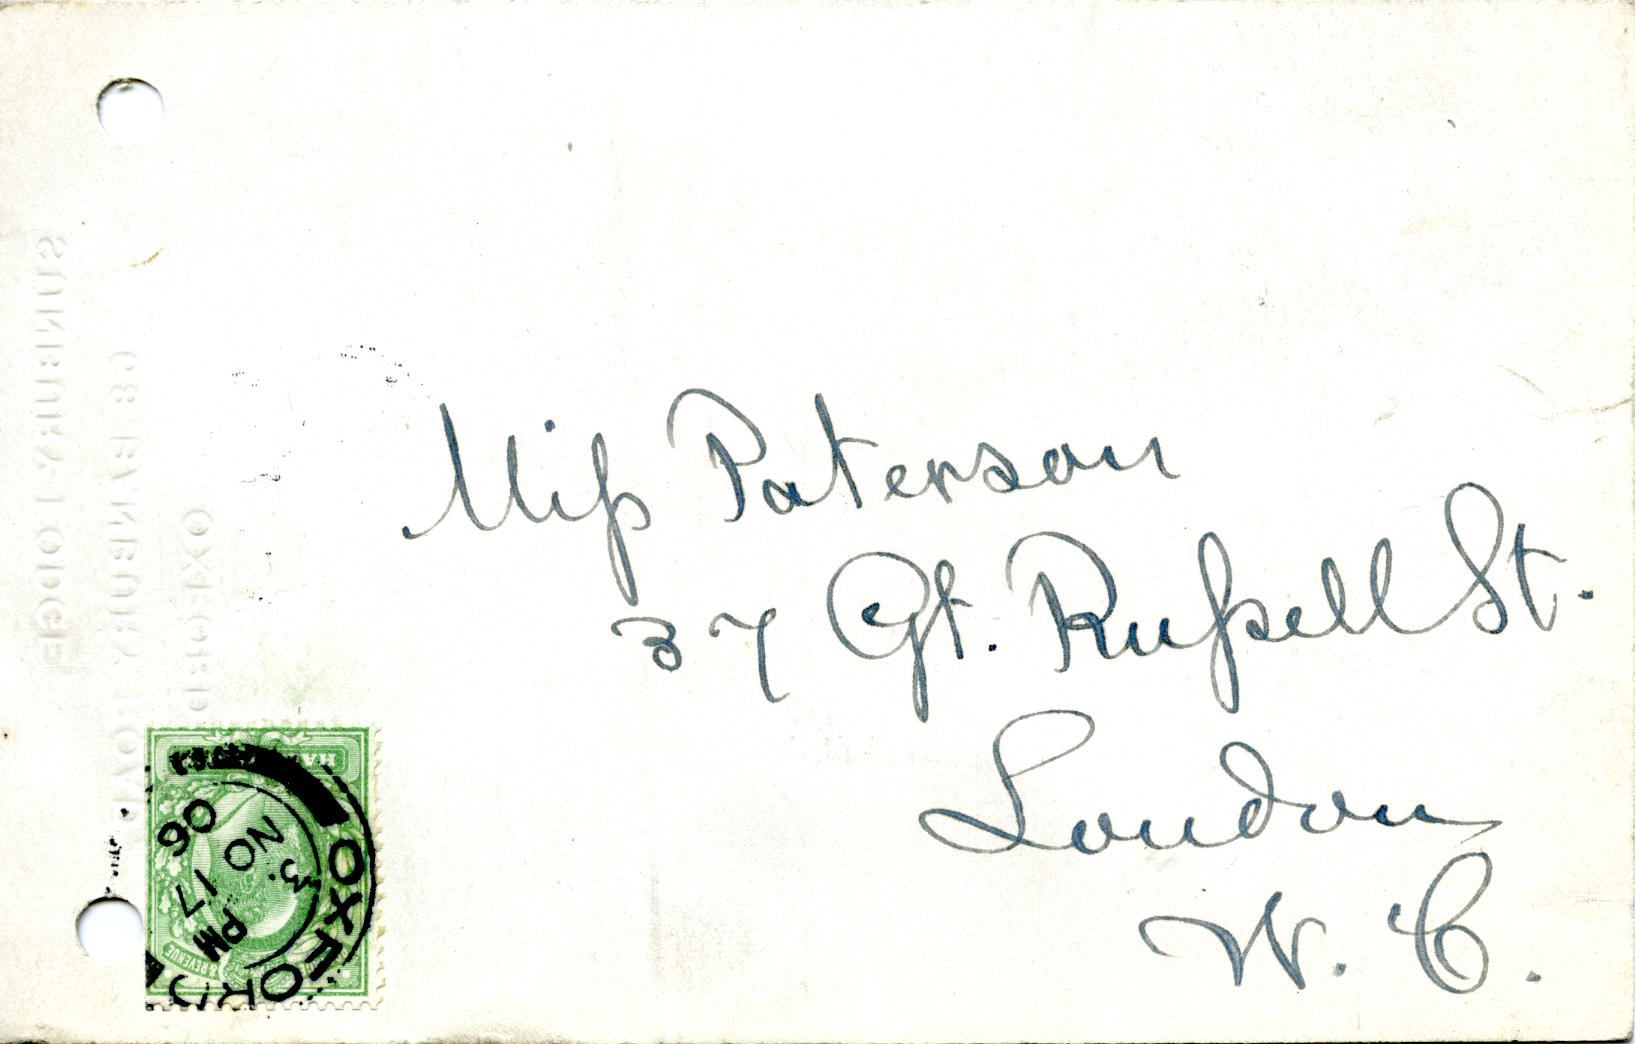 Miss Paterson
37 Gt. Russell St.
London
W. C.
SUNBURY LODGE
BANBURY ROAD
OXFORD
OXFORD
3. PM
NO 17
06
& REVENUE